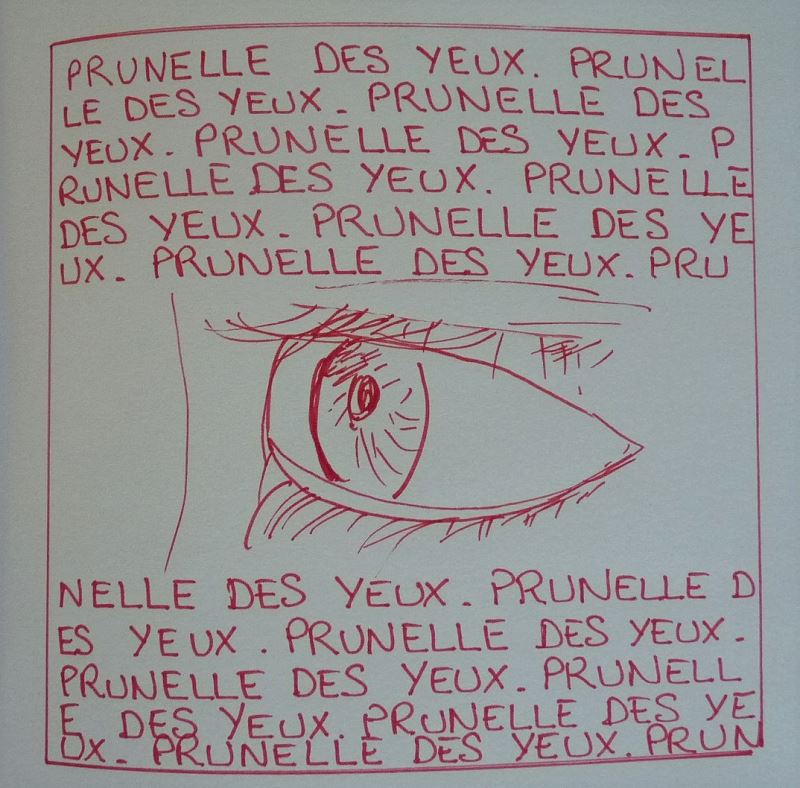 PRUNELLE DES YEUX. PRUNEL
LE DES YEUX. PRUNELLE DES
YEUX. PRUNELLE DES YEUX. P
RUNELLE DES YEUX. PRUNELLE
DES YEUX. PRUNELLE DES YE
UX. PRUNELLE DES YEUX. PRU
NELLE DES YEUX. PRUNELLE D
ES YEUX. PRUNELLE DES YEUX.
PRUNELLE DES YEUX. PRUNELL
E DES YEUX. PRUNELLE DES YE
UX. PRUNELLE DES YEUX. PRUN